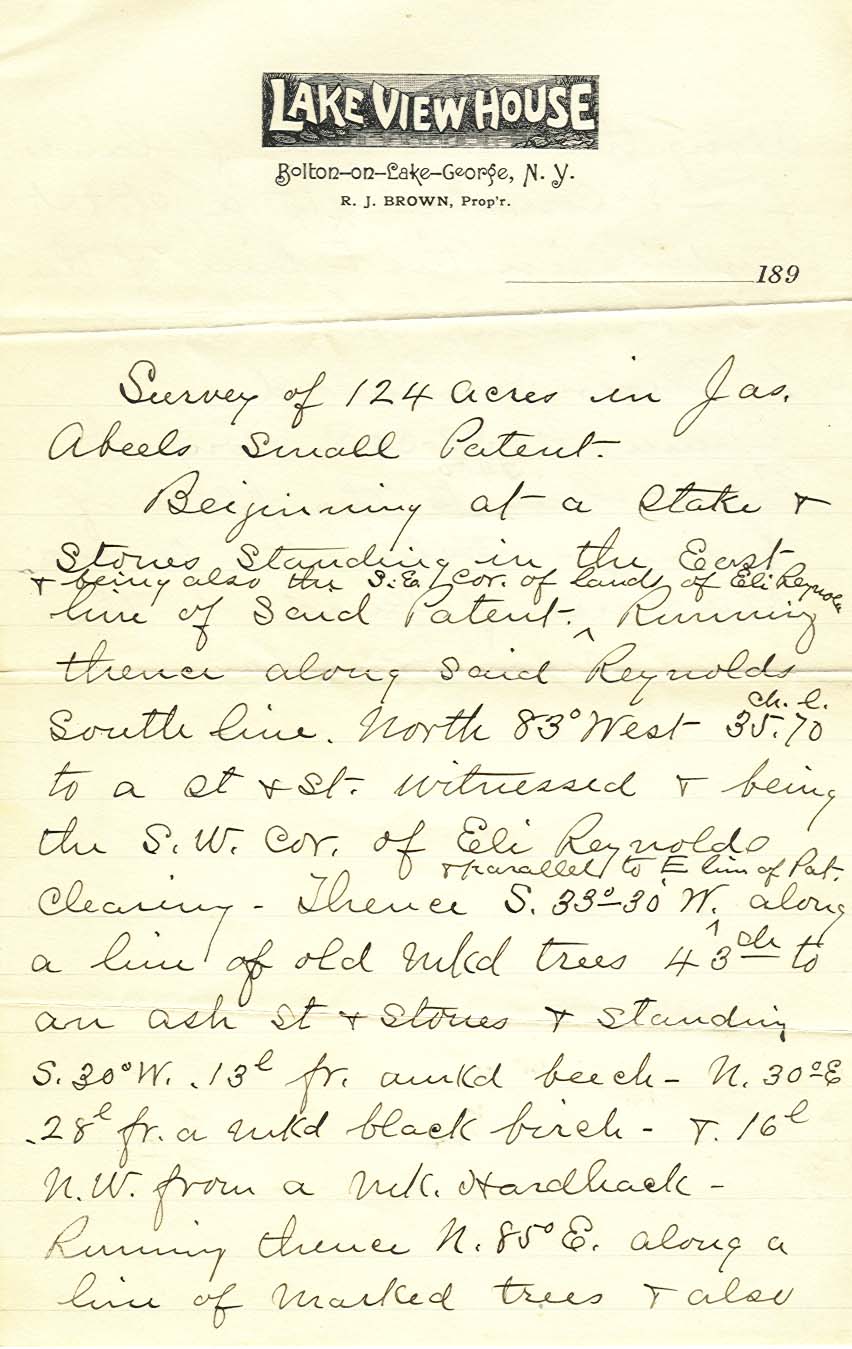 LAKE VIEW HOUSE
Bolton-on-Lake-George, N. Y.
R. J. BROWN, Prop'r.
189
Survey of 124 acres in Jas.
Abeels Small Patent.
Beiginning at a Stake &
Stones Standing in the East
& being also the S.E. Cor. of lands of Eli Reynolds
line of Said Patent. ^ Running
thence along Said Reynolds
South line. North 83° West 35.70
ch. l.
to a St & St. witnessed & being
the S. W. Cor. of Eli Reynolds
& parallel to E line of Pat.
Clearing - Thence S. 33°-30' W. ^ along
a line of old mkd trees 43 ch to
an ash St & Stones & Standing
S. 30° W. .13 l fr. a mkd beech - N. 30° E
.28 l fr. a mkd black birch - &. 16 l
N. W. from a mk. Hardhack -
Running thence N. 85° E. along a
line of marked trees & also